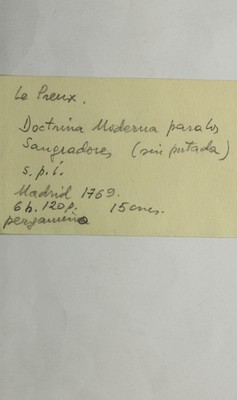 Le Preux.
Doctrina Moderna para los
Sangradores (sin portada)
s. p. i.
Madrid 1769.
6 h. 120 p. 15 cms.
pergamino